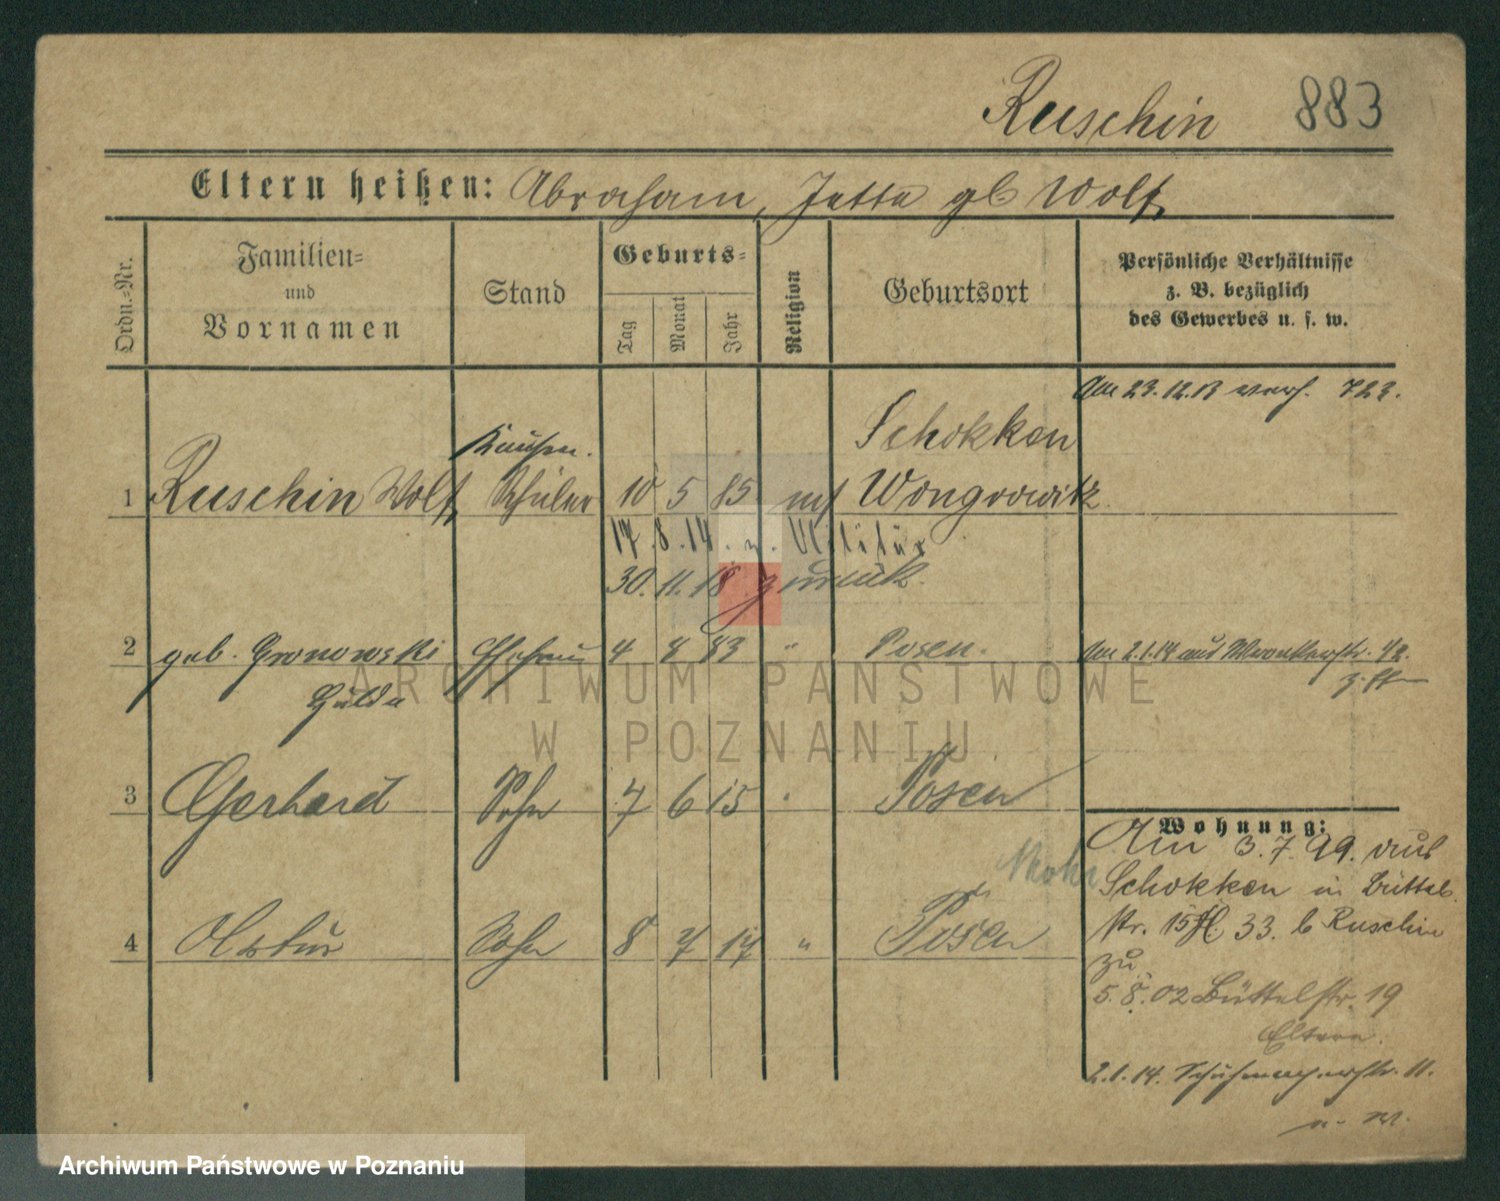 Ruschin 883
Eltern heißen: Abraham, Jette gb Wolf
Ordn.=Nr.
Familien=
und
Vornamen
Stand
Geburts=
Tag
Monat
Jahr
Religion
Geburtsort
Persönliche Verhältnisse
z. B. bezüglich
des Gewerbes u. s. w.
Am 23.12.13 verh. 723.
Kaufm.
Schokken
1 Ruschin Wolf Schüler 10 5 85 mos Wongrowitz
17.8.14. z. Militär
30.11.18 zurück.
2 geb. Gronowski Ehefrau 4 8 83 " Posen. Am 2.1.14 aus Wronkerstr.
Hulda
3 Gerhard Sohn 7 6 15 " Posen
4 Artur Sohn 8 7 17 " Posen
Wohnung:
Am 3.7.99. aus
Schokken in Büttel
str. 15 33. b Ruschin
zu
5.8.02 Büttelstr. 19
Eltern.
2.1.14. Schuhmacherstr. 11.
ARCHIWUM PAŃSTWOWE
W POZNANIU
Archiwum Państwowe w Poznaniu